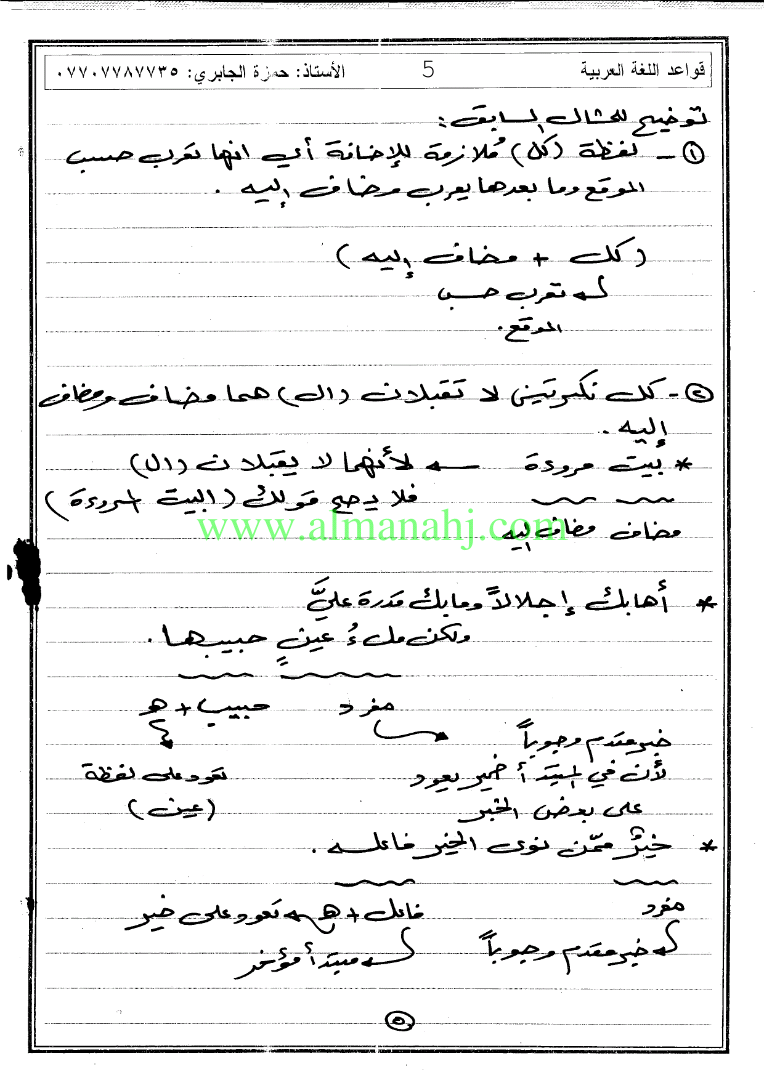 قواعد اللغة العربية 5 الأستاذ: حمزة الجابري: ٠٧٧٠٧٧٨٧٧٣٥
توضيح المثال السابق:
١- لفظة (كل) مُلازمة للإضافة أي انها تعرب حسب
الموقع وما بعدها يعرب مضاف إليه .
(كل + مضاف إليه)
تعرب حسب
الموقع.
٢- كل نكرتين لا تقبلان (ال) هما مضاف ومضاف
إليه .
* بيت مروءة لأنهما لا يقبلان (ال)
فلا يصح قولك (البيت المروءة)
www.almanahj.com
مضاف مضاف إليه
* أهابك إجلالاً وما بك قدرة عليَّ
ولكن ملءُ عينٍ حبيبها .
مفرد حبيب + ها
خبر مقدم وجوباً
لأن في المبتدأ ضمير يعود تعود على لفظة
على بعض الخبر (عين)
* خيرٌ ممّن نوى الخير فاعله .
مفرد فاعل + ه تعود على خير
خبر مقدم وجوباً مبتدأ مؤخر
٥